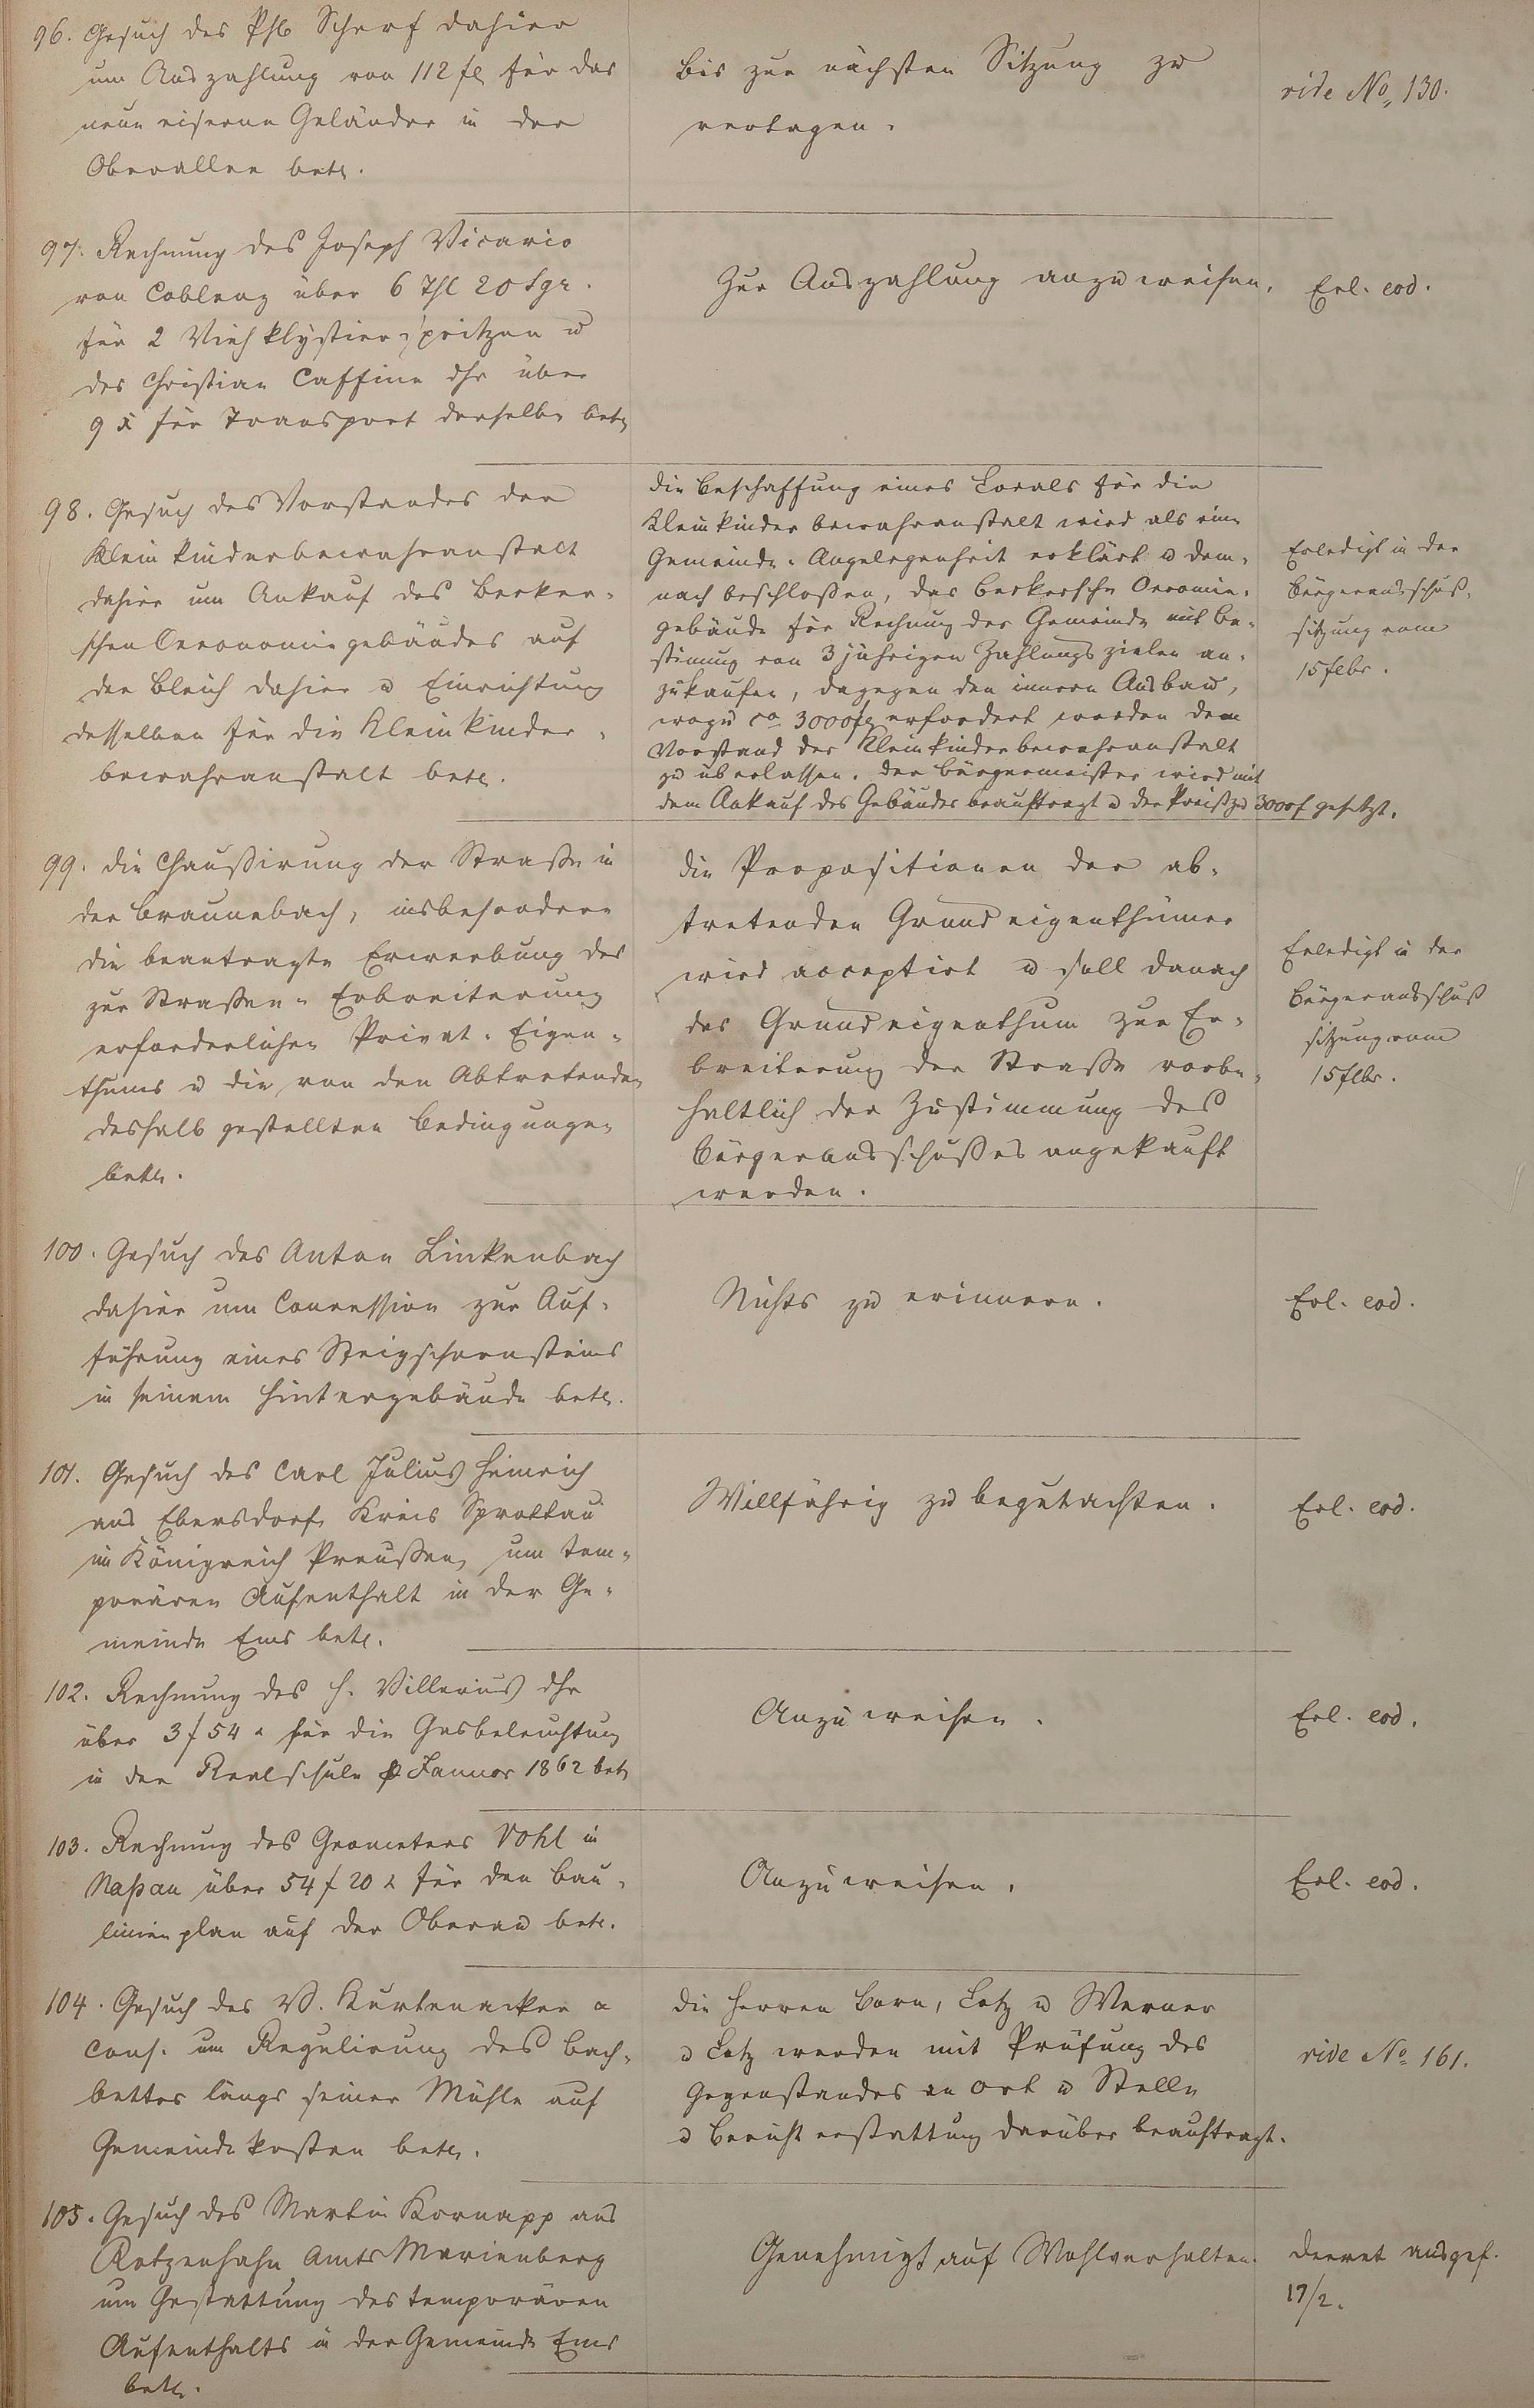 96. Gesuch des Phlb Scherf dahier
um Auszahlung von 112 fl für das
neue eiserne Geländer in der
Oberallee betr.
bis zur nächsten Sitzung zu
vertagen.
vide No. 130.
97. Rechnung des Joseph Vicario
von Coblenz über 6 Thl 20 Sgr.
für 2 Viehklystier-spritzen u
des Christian Caffine dhr über
9 x für Transport derselbn betr
Zur Auszahlung anzuweisen.
Erl. eod.
98. Gesuch des Vorstandes der
Kleinkinderbewahranstalt
dahier um Ankauf des Becker-
schen Oeconomiegebäudes auf
der Bleich dahier u Einrichtung
desselben für die Kleinkinder-
bewahranstalt betr.
die Beschaffung eines Locals für die
Kleinkinderbewahranstalt wird als eine
Gemeinde-Angelegenheit erklärt u dem-
nach beschloßen, das Beckersche Oeconomie-
gebäude für Rechnung der Gemeinde mit Be-
stimung von 3 jährigen Zahlungszielen an-
zukaufen, dagegen den innern Ausbau,
wozu ca 3000 fl erfordert werden dem
Vorstand der Kleinkinderbewahranstalt
zu überlassen. der Bürgermeister wird mit
dem Ankauf des Gebäudes beauftragt u der Preiß zu 3000 f gesetzt.
Erledigt in der
Bürgerausschuß-
sitzung vom
15 febr.
99. die Chaußirung der Straße in
der Braunebach, insbesondere
die beantragte Erwerbung des
zur Straßen-Erbreiterung
erforderlichen Privat-Eigen-
thums u die von den Abtretenden
deshalb gestellten Bedingungen
betr.
die Propositionen der ab-
tretenden Grundeigenthümer
wird acceptirt u soll danach
das Grundeigenthum zur Er-
breiterung der Straße vorbe-
haltlich der Zustimmung des
Bürgerausschußes angekauft
werden.
Erledigt in der
Bürgerausschuß
sitzung vom
15 febr.
100. Gesuch des Anton Linkenbach
dahier um Concession zur Auf-
führung eines Steigschornsteins
in seinem Hintergebäude betr.
Nichts zu erinnern.
Erl. eod.
101. Gesuch des Carl Julius Heinrich
aus Ebersdorf Kreis Sprottau
im Königreich Preußen, um tem-
porären Aufenthalt in der Ge-
meinde Ems betr.
Willfährig zu begutachten.
Erl. eod.
102. Rechnung des H. Villerius dhr
über 3 f 54 x für die Gasbeleuchtung
in der Realschule p Januar 1862 betr
Anzuweisen.
Erl. eod.
103. Rechnung des Geometers Vohl in
Naßau über 54 f 20 x für den Bau-
linienplan auf der Oberau betr.
Anzuweisen.
Erl. eod.
104. Gesuch des W. Kurtenacker &
Cons. um Regulirung des Bach-
bettes längs seiner Mühle auf
Gemeindekosten betr.
die Herren Born, Lotz u Werner
u Lotz werden mit Prüfung des
Gegenstandes an Ort u Stelle
u Berichterstattung darüber beauftragt.
vide No. 161.
105. Gesuch des Martin Kornapp aus
Rotzenhahn Amts Marienberg
um Gestattung des temporären
Aufenthalts in der Gemeinde Ems
betr.
Genehmigt auf Wohlverhalten.
Decret ausgef.
17/2.